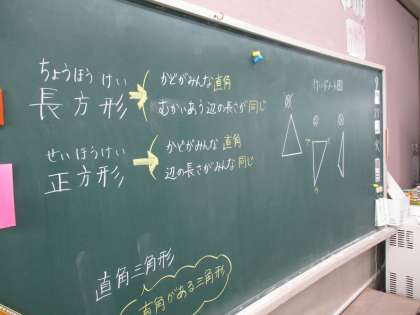 ちょうほうけい
長方形
かどがみんな直角
むかいあう辺の長さが同じ
せいほうけい
正方形
かどがみんな直角
辺の長さがみんな同じ
直角三角形
直角がある三角形